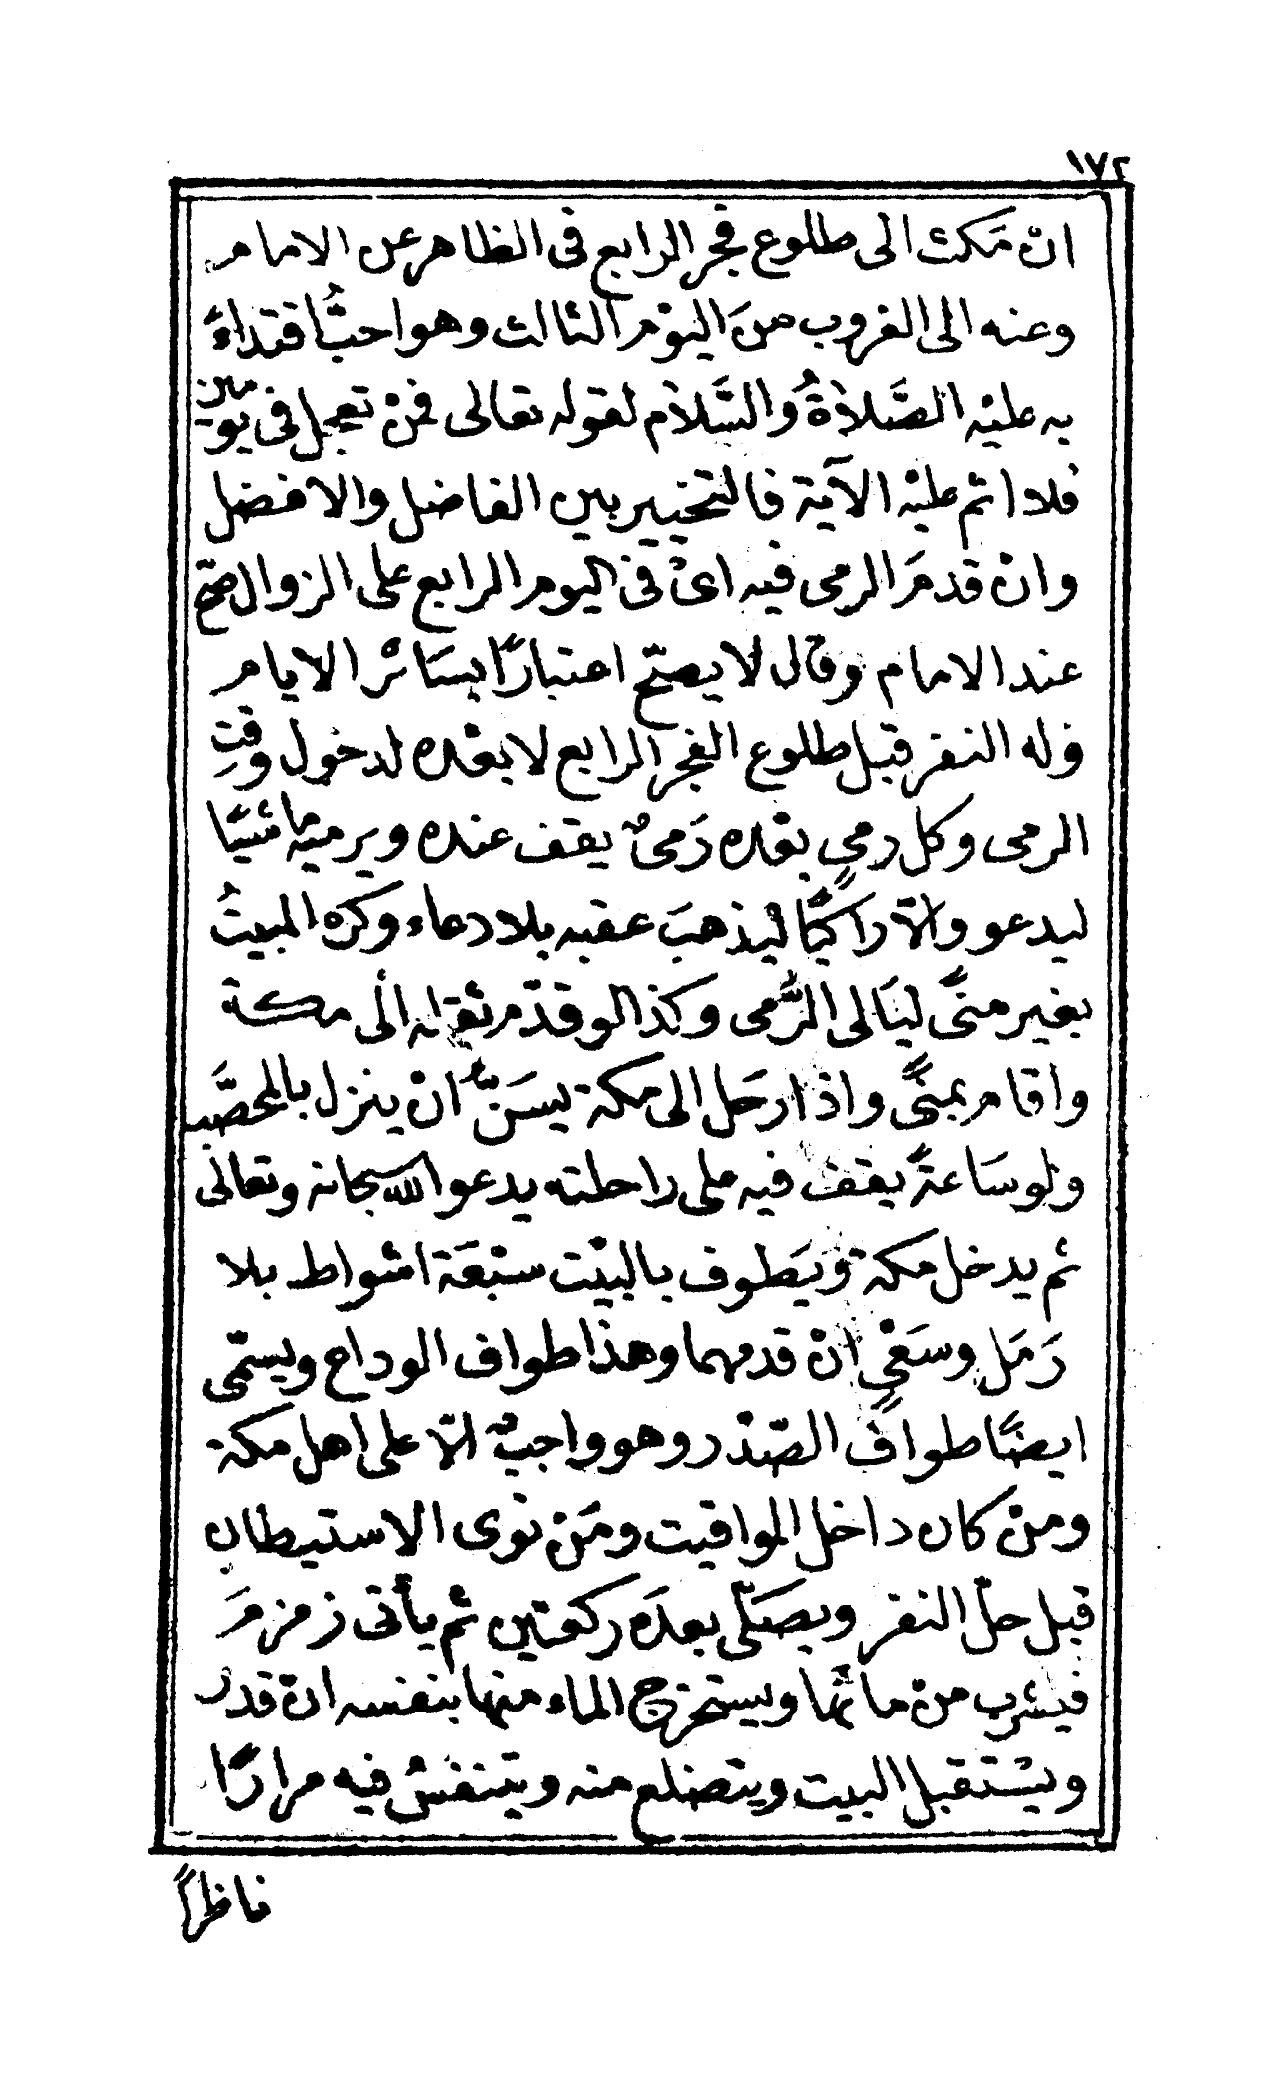 ١٧٢
ان مكث الى طلوع فجر الرابع فى الظاهر عن الامام
وعنه الى الغروب منَ اليوْم الثالث وهو احبُّ اقتداءً
به عليْه الصَّلاةُ والسَّلام لقوله تعالى فمنْ تعجل فى يومين
فلا اثم عليْه الآية فالتخيير بين الفاضل والافضل
وانْ قدمَ الرمى فيه اىْ فى اليوم الرابع على الزوال صحّ
عند الامام وقال لا يصحّ اعتبارًا بسَائر الايام
وله النفر قبل طلوع الفجر الرابع لا بعْده لدخول وقتِ
الرمى وكل رميٍ بعْده رَمىٌ يقف عنده ويرميه ماشيًا
ليدعو والّا راكبًا ليذهبَ عقبه بلا دعاء وكره المبيتُ
بغير منىً ليَالى الرَّمى وكذا لو قدّم ثقله الى مكة
واقام بمنىً واذا رحَل الى مكة يسَنُّ انْ ينزل بالمحصَّب
ولو سَاعةً يقف فيه على راحلته يدعو الله سبحانه وتعالى
ثم يدخل مكة ويَطوف بالبيْت سبْعَة اشواط بلا
رَمَل وسَعْيٍ انْ قدمهما وهذا طواف الوداع ويسمّى
ايضًا طواف الصّدْر وهو واجبٌ الّا على اهل مكة
ومنْ كان داخل المواقيت ومَنْ نوى الاستيطان
قبل حلّ النفر ويصَلّى بعدَه ركعتين ثم يأتى زمزمَ
فيشرب منْ مائها ويستخرج الماء منها بنفسه انْ قدر
ويسْتقبل البيت ويتضلع منه ويتنفسُ فيه مرارًا
ناظرًا